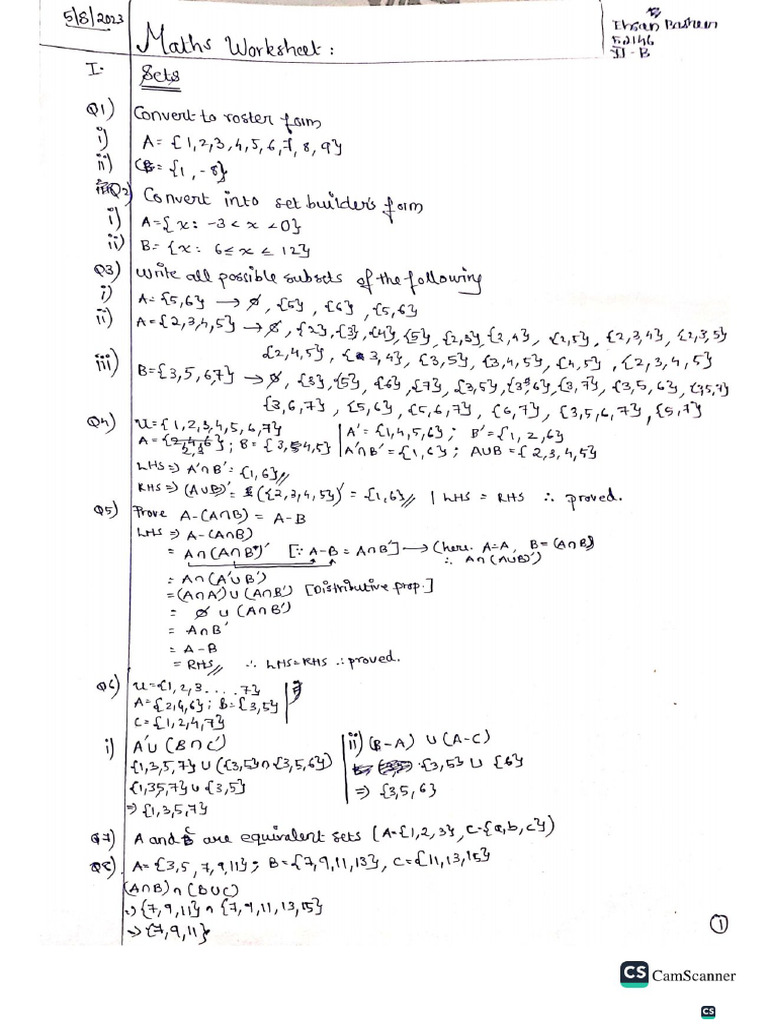 5/8/2023
Maths Worksheet:
52146
II-B
I. Sets
Q1) Convert to roster form
i) A= {1,2,3,4,5,6,7,8,9}
ii) B= {1, -8}
Q2) Convert into set builders form
i) A={x: -3 < x < 0}
ii) B= {x: 6 ≤ x ≤ 12}
Q3) Write all possible subsets of the following
i) A= {5,6} → ø, {5}, {6}, {5,6}
ii) A= {2,3,4,5} → ø, {2}, {3}, {4}, {5}, {2,3}, {2,4}, {2,5}, {2,3,4}, {2,3,5}
{2,4,5}, {3,4}, {3,5}, {3,4,5}, {4,5}, {2,3,4,5}
iii) B= {3,5,6,7} → ø, {3}, {5}, {6}, {7}, {3,5}, {3,6}, {3,7}, {3,5,6}, {3,5,7}
{3,6,7}, {5,6}, {5,6,7}, {6,7}, {3,5,6,7}, {5,7}
Q4) U= {1,2,3,4,5,6,7} | A' = {1,4,5,6}; B' = {1,2,6}
A= {2,3}; B= {3,4,5} | A'∩B' = {1,6}; AUB = {2,3,4,5}
LHS => A'∩B' = {1,6}//
RHS => (AUB)' = ({2,3,4,5})' = {1,6}// | LHS = RHS ∴ proved.
Q5) Prove A-(A∩B) = A-B
LHS => A-(A∩B)
= A∩(A∩B)' [∵ A-B = A∩B'] → (here. A=A, B=(A∩B)
∴ A∩(A∪B)')
= A∩(A'∪B')
= (A∩A')∪(A∩B') [Distributive prop.]
= ø ∪ (A∩B')
= A∩B'
= A-B
= RHS// ∴ LHS=RHS ∴ proved.
Q6) U= {1,2,3....7}
A= {2,4,6}; B= {3,5}
C= {1,2,4,7}
i) A'∪(B∩C')
{1,3,5,7} ∪ ({3,5}∩{3,5,6})
{1,3,5,7} ∪ {3,5}
=> {1,3,5,7}
ii) (B-A) ∪ (A-C)
{3,5} ∪ {6}
=> {3,5,6}
Q7) A and C are equivalent sets (A={1,2,3}, C={a,b,c})
Q8) A= {3,5,7,9,11}; B= {7,9,11,13}, C= {11,13,15}
(A∩B)∩(B∪C)
=> {7,9,11} ∩ {7,9,11,13,15}
=> {7,9,11}
1
CS CamScanner
CS